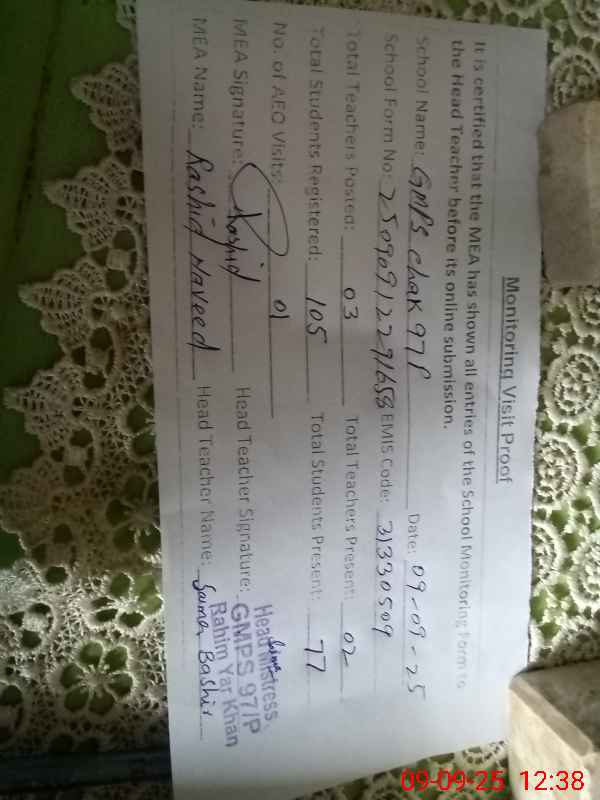 Monitoring Visit Proof
It is certified that the MEA has shown all entries of the School Monitoring Form to
the Head Teacher before its online submission.
School Name: GMPS chak 97P Date: 09-09-25
School Form No: 25090912291658 EMIS Code: 31330509
Total Teachers Posted: 03 Total Teachers Present: 02
Total Students Registered: 105 Total Students Present: 77
No. of AEO Visits: 01
MEA Signature: Rashid Head Teacher Signature:
Head Mistress
GMPS 97/P
Rahim Yar Khan
MEA Name: Rashid Naveed Head Teacher Name: Saima Bashir
09-09-25 12:38